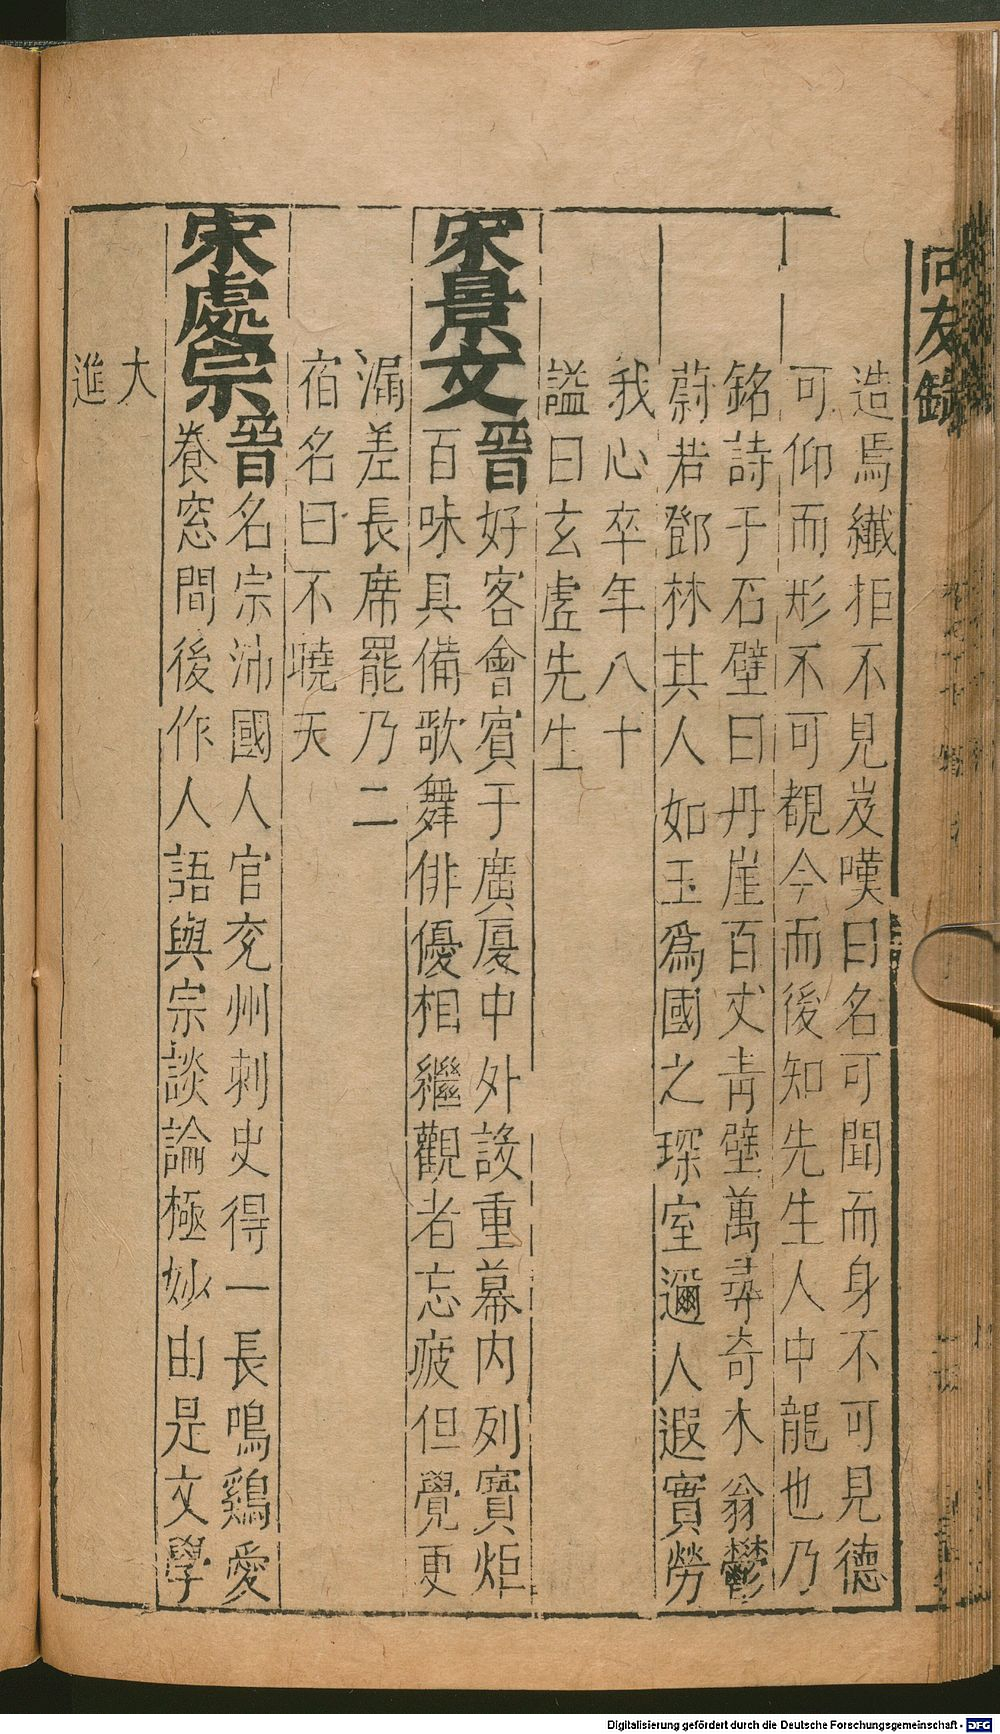 尚友錄
造焉纖拒不見岌嘆曰名可聞而身不可見德
可仰而形不可覩今而後知先生人中龍也乃
銘詩于石壁曰丹崖百丈青壁萬尋奇木蓊鬱
蔚若鄧林其人如玉爲國之琛室邇人遐實勞
我心卒年八十
謚曰玄虛先生
宋景文
晉好客會賓于廣厦中外設重幕内列寶炬
百味具備歌舞俳優相繼觀者忘疲但覺更
漏差長席罷乃二
宿名曰不曉天
宋處宗
晉名宗沛國人官兖州刺史得一長鳴鷄愛
養窓間後作人語與宗談論極妙由是文學
大
進
Digitalisierung gefördert durch die Deutsche Forschungsgemeinschaft - DFG